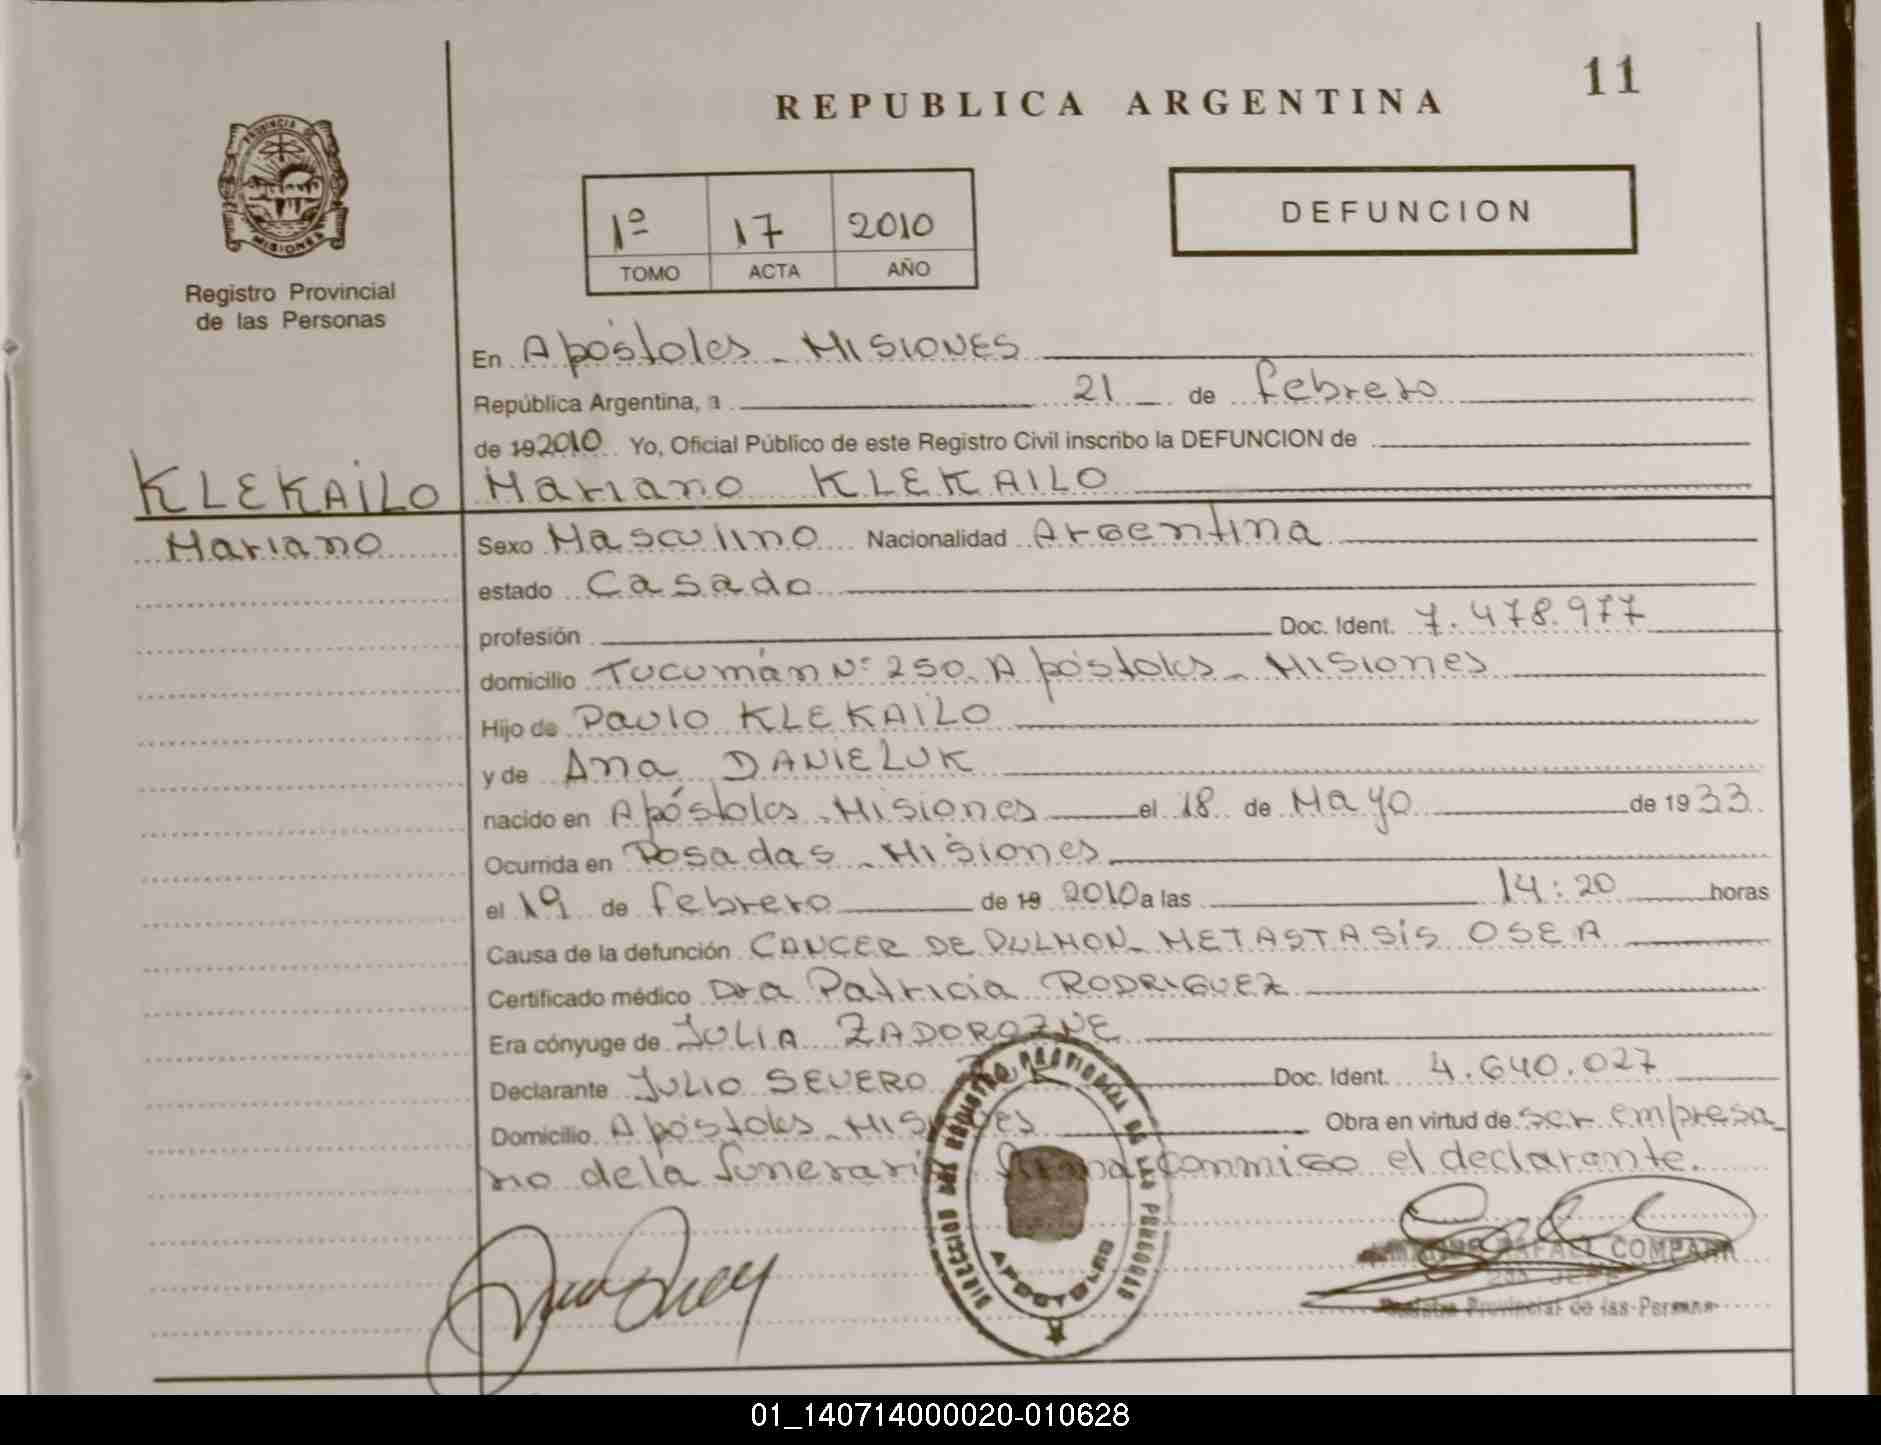 11
REPUBLICA ARGENTINA
PROVINCIA DE
MISIONES
Registro Provincial
de las Personas
1º 17 2010
TOMO ACTA AÑO
DEFUNCION
En Apóstoles - MISIONES
República Argentina, a 21 de febrero
de 19 2010 Yo, Oficial Público de este Registro Civil inscribo la DEFUNCION de
KLEKAILO Mariano KLEKAILO
Mariano Sexo Masculino Nacionalidad Argentina
estado Casado
profesión Doc. Ident. 7.478.977
domicilio Tucumán Nº 250 Apóstoles - Misiones
Hijo de Paulo KLEKAILO
y de Ana DANIELUK
nacido en Apóstoles - Misiones el 18 de Mayo de 1933
Ocurrida en Posadas - Misiones
el 19 de febrero de 19 2010 a las 14:20 horas
Causa de la defunción CANCER DE PULMON - METASTASIS OSEA
Certificado médico Dra Patricia RODRIGUEZ
Era cónyuge de JULIA ZADOROZNE
Declarante JULIO SEVERO Doc. Ident. 4.640.027
Domicilio Apóstoles - Misiones Obra en virtud de ser empresa
rio de la funeraria firma conmigo el declarante.
DIRECCION DEL REGISTRO PROVINCIAL DE LAS PERSONAS
APOSTOLES
RAFAEL
JEFE
Registro Provincial de las Personas
01_140714000020-010628